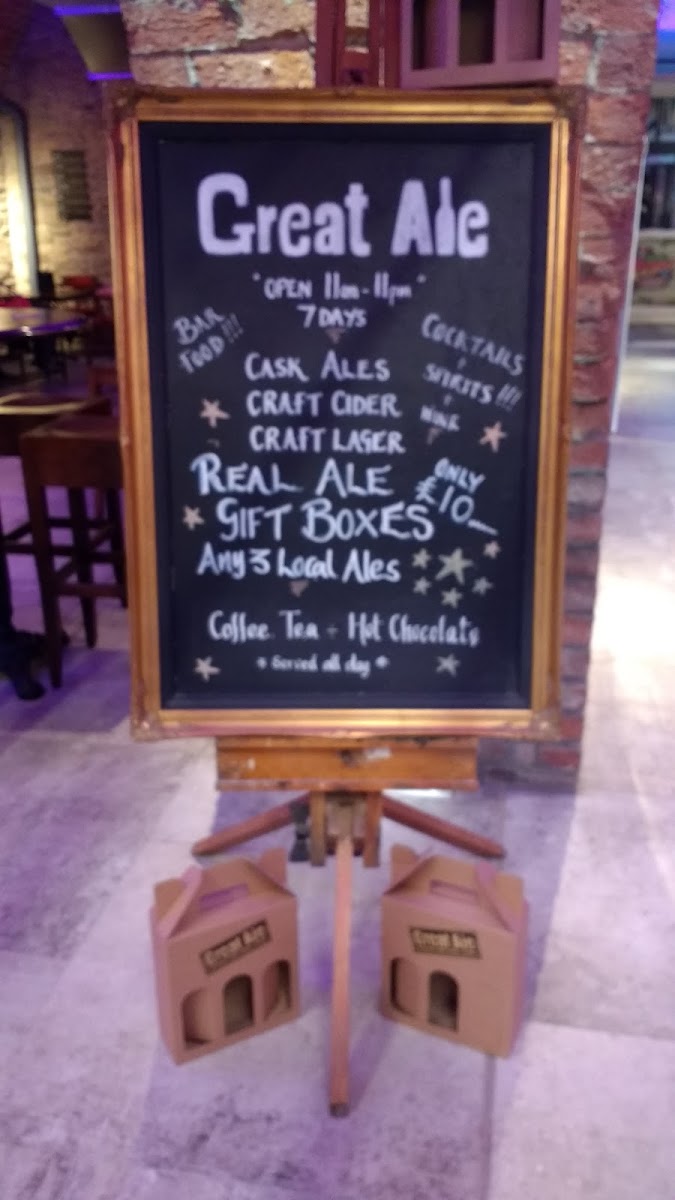 Great Ale
"OPEN 11am - 11pm"
7 DAYS
BAR
FOOD!!!
COCKTAILS
+
SPIRITS!!!
+
WINE
CASK ALES
CRAFT CIDER
CRAFT LAGER
REAL ALE
GIFT BOXES
ONLY
£10
Any 3 Local Ales
Coffee Tea + Hot Chocolate
* Served all day *
Great Ale
Great Ale